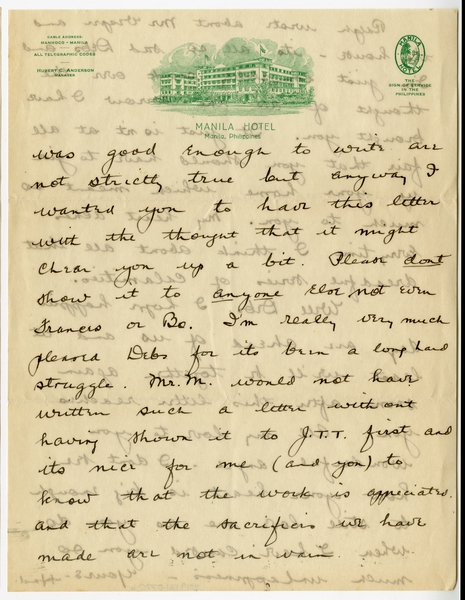 CABLE ADDRESS
MANHOCO - MANILA
ALL TELEGRAPHIC CODES
HUBERT C. ANDERSON
MANAGER
MANILA HOTEL
Manila, Philippines
MANILA
HOTEL
THE
SIGN OF SERVICE
IN THE
PHILIPPINES
was good enough to write are
not strictly true but anyway I
wanted you to have this letter
with the thought that it might
chear you up a bit. Please dont
show it to anyone else not even
Francis or Bo. I'm really very much
pleased Debs for its been a long hard
struggle. Mr. M. would not have
written such a letter without
having shown it to J.T.T. first and
its nice for me (and you) to
know that the work is appeciates
and that the sacrifices we have
made are not in vain.